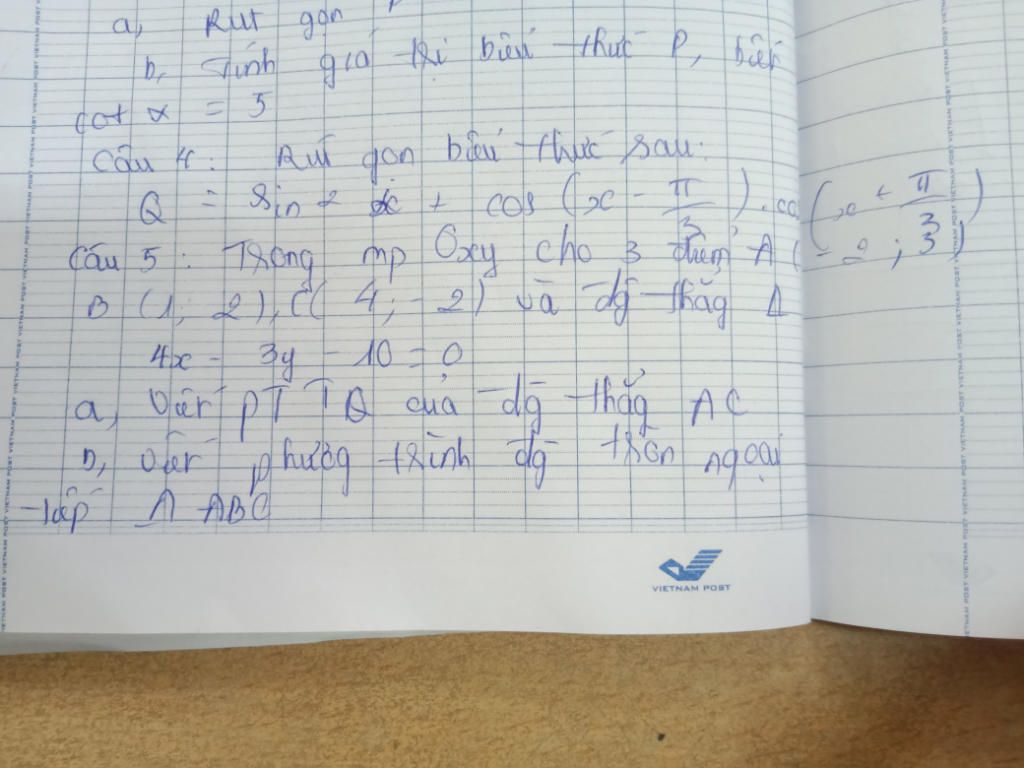 a, Rút gọn
b, Tính giá trị biểu thức P, biết
cot α = 5
Câu 4: Rút gọn biểu thức sau:
Q = sin² x + cos (x - π/3). co (x + π/3)
Câu 5: Trong mp Oxy cho 3 điểm A (-2; 3)
B (1; 2), C( 4; -2) và đg thẳg Δ
4x - 3y - 10 = 0
a, Viết PT TQ của đg thẳg AC
b, Viết phươg trình đg tròn ngoại
tiếp Δ ABC
VIETNAM POST